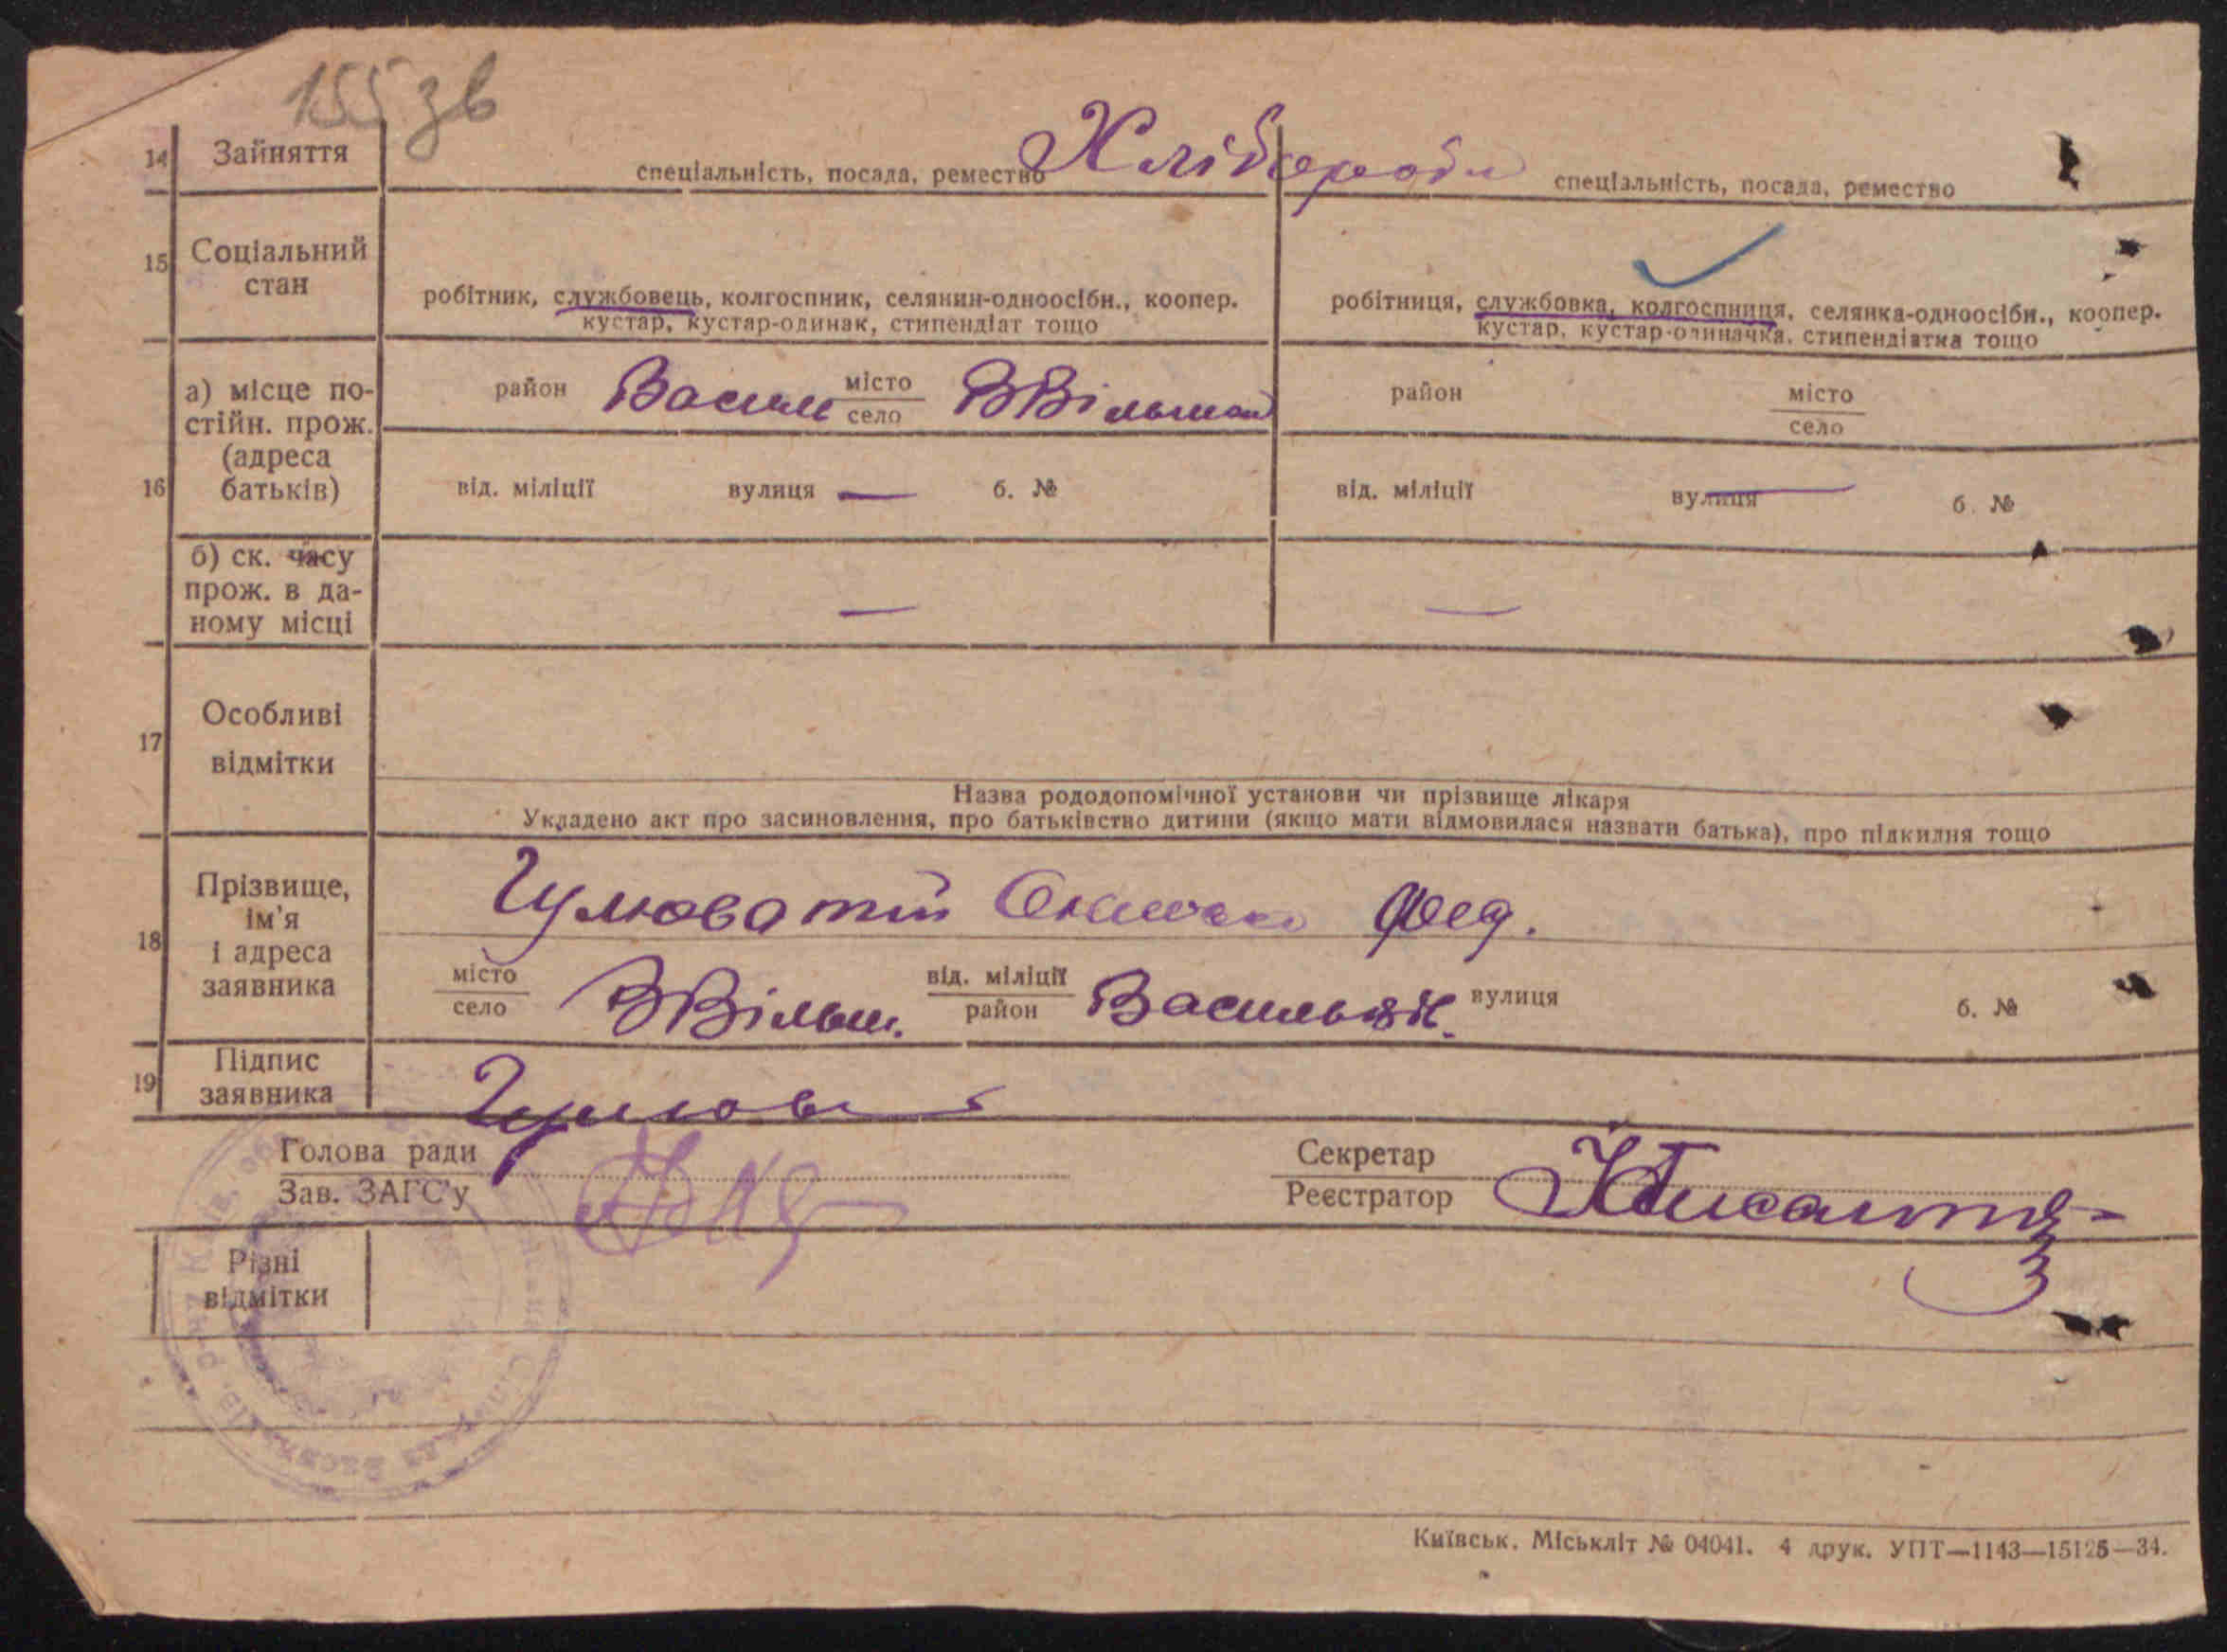 155 зв
14 Зайняття
спеціальність, посада, ремество Хлібороби спеціальність, посада, ремество
15 Соціальний стан
робітник, службовець, колгоспник, селянин-одноосібн., коопер. робітниця, службовка, колгоспниця, селянка-одноосібн., коопер.
кустар, кустар-одинак, стипендіат тощо кустар, кустар-одиначка, стипендіатка тощо
16 а) місце постійн. прож. (адреса батьків)
район Васил місто село ВВільшан район місто село
від. міліції вулиця — б. № від. міліції вулиця — б. №
б) ск. часу прож. в даному місці — —
17 Особливі відмітки
Назва рододопомічної установи чи прізвище лікаря
Укладено акт про засиновлення, про батьківство дитини (якщо мати відмовилася назвати батька), про підкидня тощо
18 Прізвище, ім'я і адреса заявника
Гулюватий Фед.
місто село ВВільш. від. міліції район Васильків. вулиця б. №
19 Підпис заявника
Голова ради Секретар
Зав. ЗАГС'у Реєстратор
Різні відмітки
Київськ. Міськліт № 04041. 4 друк. УПТ—1143—15125—34.